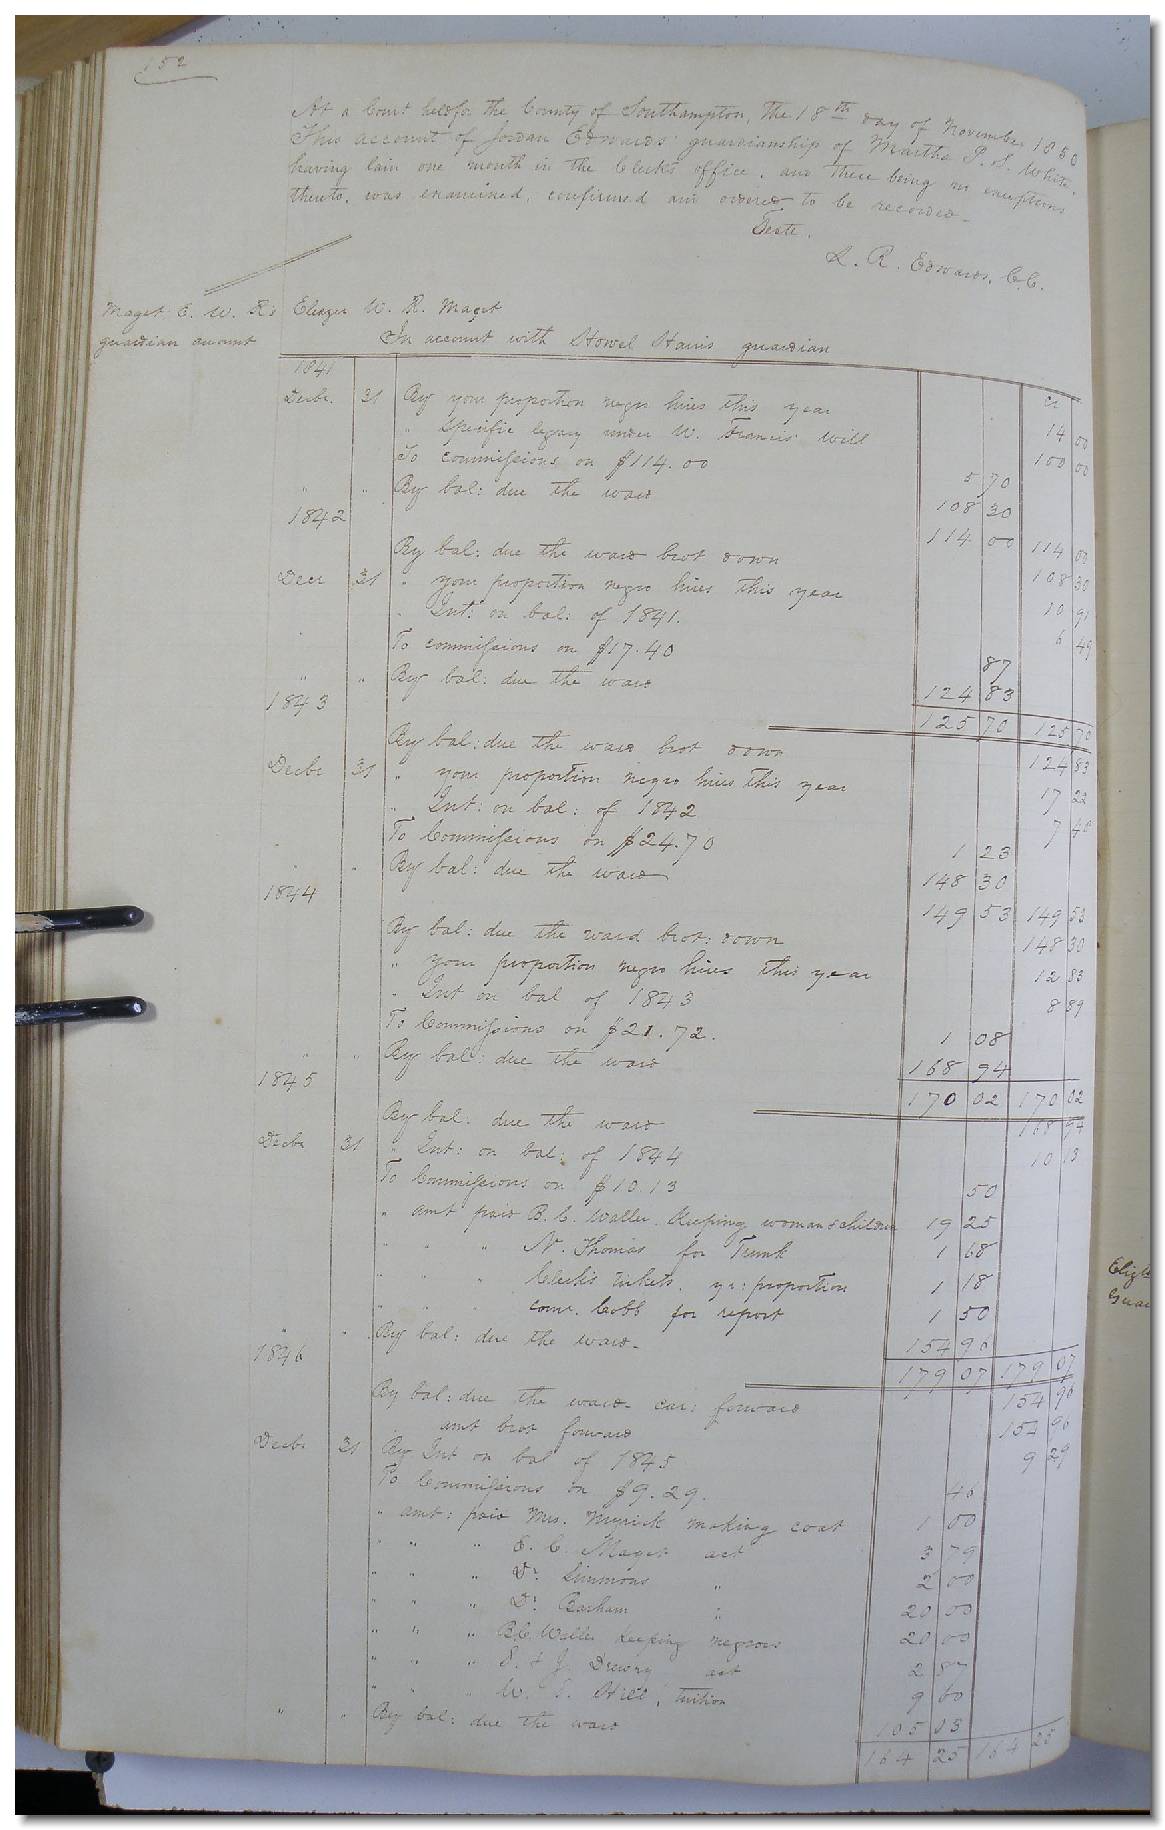 152
At a Court held for the County of Southampton, the 18th day of November 1850
This account of Jordan Edwards' guardianship of Martha P. S. White,
having lain one month in the Clerk's office, and there being no exceptions
thereto, was examined, confirmed and ordered to be recorded_
Teste.
L. R. Edwards, C.C.
Maget E. W. R's Eleazer W. R. Maget
guardian account In account with Howel Harris guardian
1841 cr
Decbr. 31 By your proportion negro hires this year 14 00
" Specific legacy under W. Francis' will 100 00
To commissions on $114.00 5 70
" " By bal: due the ward 108 30
1842 114 00 114 00
By bal: due the ward brot down 108 30
Decr 31 " your proportion negro hires this year 10 91
" Int: on bal: of 1841. 6 49
To commissions on $17.40 87
" " By bal: due the ward 124 83
1843 125 70 125 70
By bal: due the ward brot down 124 83
Decbr 31 " your proportion negro hires this year 17 22
" Int: on bal: of 1842 7 48
To Commissions on $24.70 1 23
" " By bal: due the ward 148 30
1844 149 53 149 53
By bal: due the ward brot: down 148 30
" your proportion negro hires this year 12 83
" Int on bal of 1843 8 89
To Commissions on $21.72. 1 08
" " By bal: due the ward 168 94
1845 170 02 170 02
By bal: due the ward 168 94
Decbr 31 " Int: on bal: of 1844 10 13
To Commissions on $10.13 50
" amt paid B. C. Waller Keeping woman & children 19 25
" " " N. Thomas for Trunk 1 68
" " " Clerk's tickets, yr: proportion 1 18
" " " comr. Cobb for report 1 50
" " By bal: due the ward_ 154 96
1846 179 07 179 07
By bal: due the ward car: forward 154 96
amt brot forward 154 96
Decbr 31 By Int on bal of 1845 9 29
To Commissions on $9.29. 46
" amt: paid Mrs. Myrick making coat 1 00
" " " E. C. Maget act 3 79
" " " Dr. Simmons " 2 00
" " " Dr. Barham " 20 00
" " " B.C. Waller keeping negroes 20 00
" " " & J. Drewry act 2 87
" " " W. Hill, tuition 9 60
" " By bal: due the ward 105 03
164 25 164 25